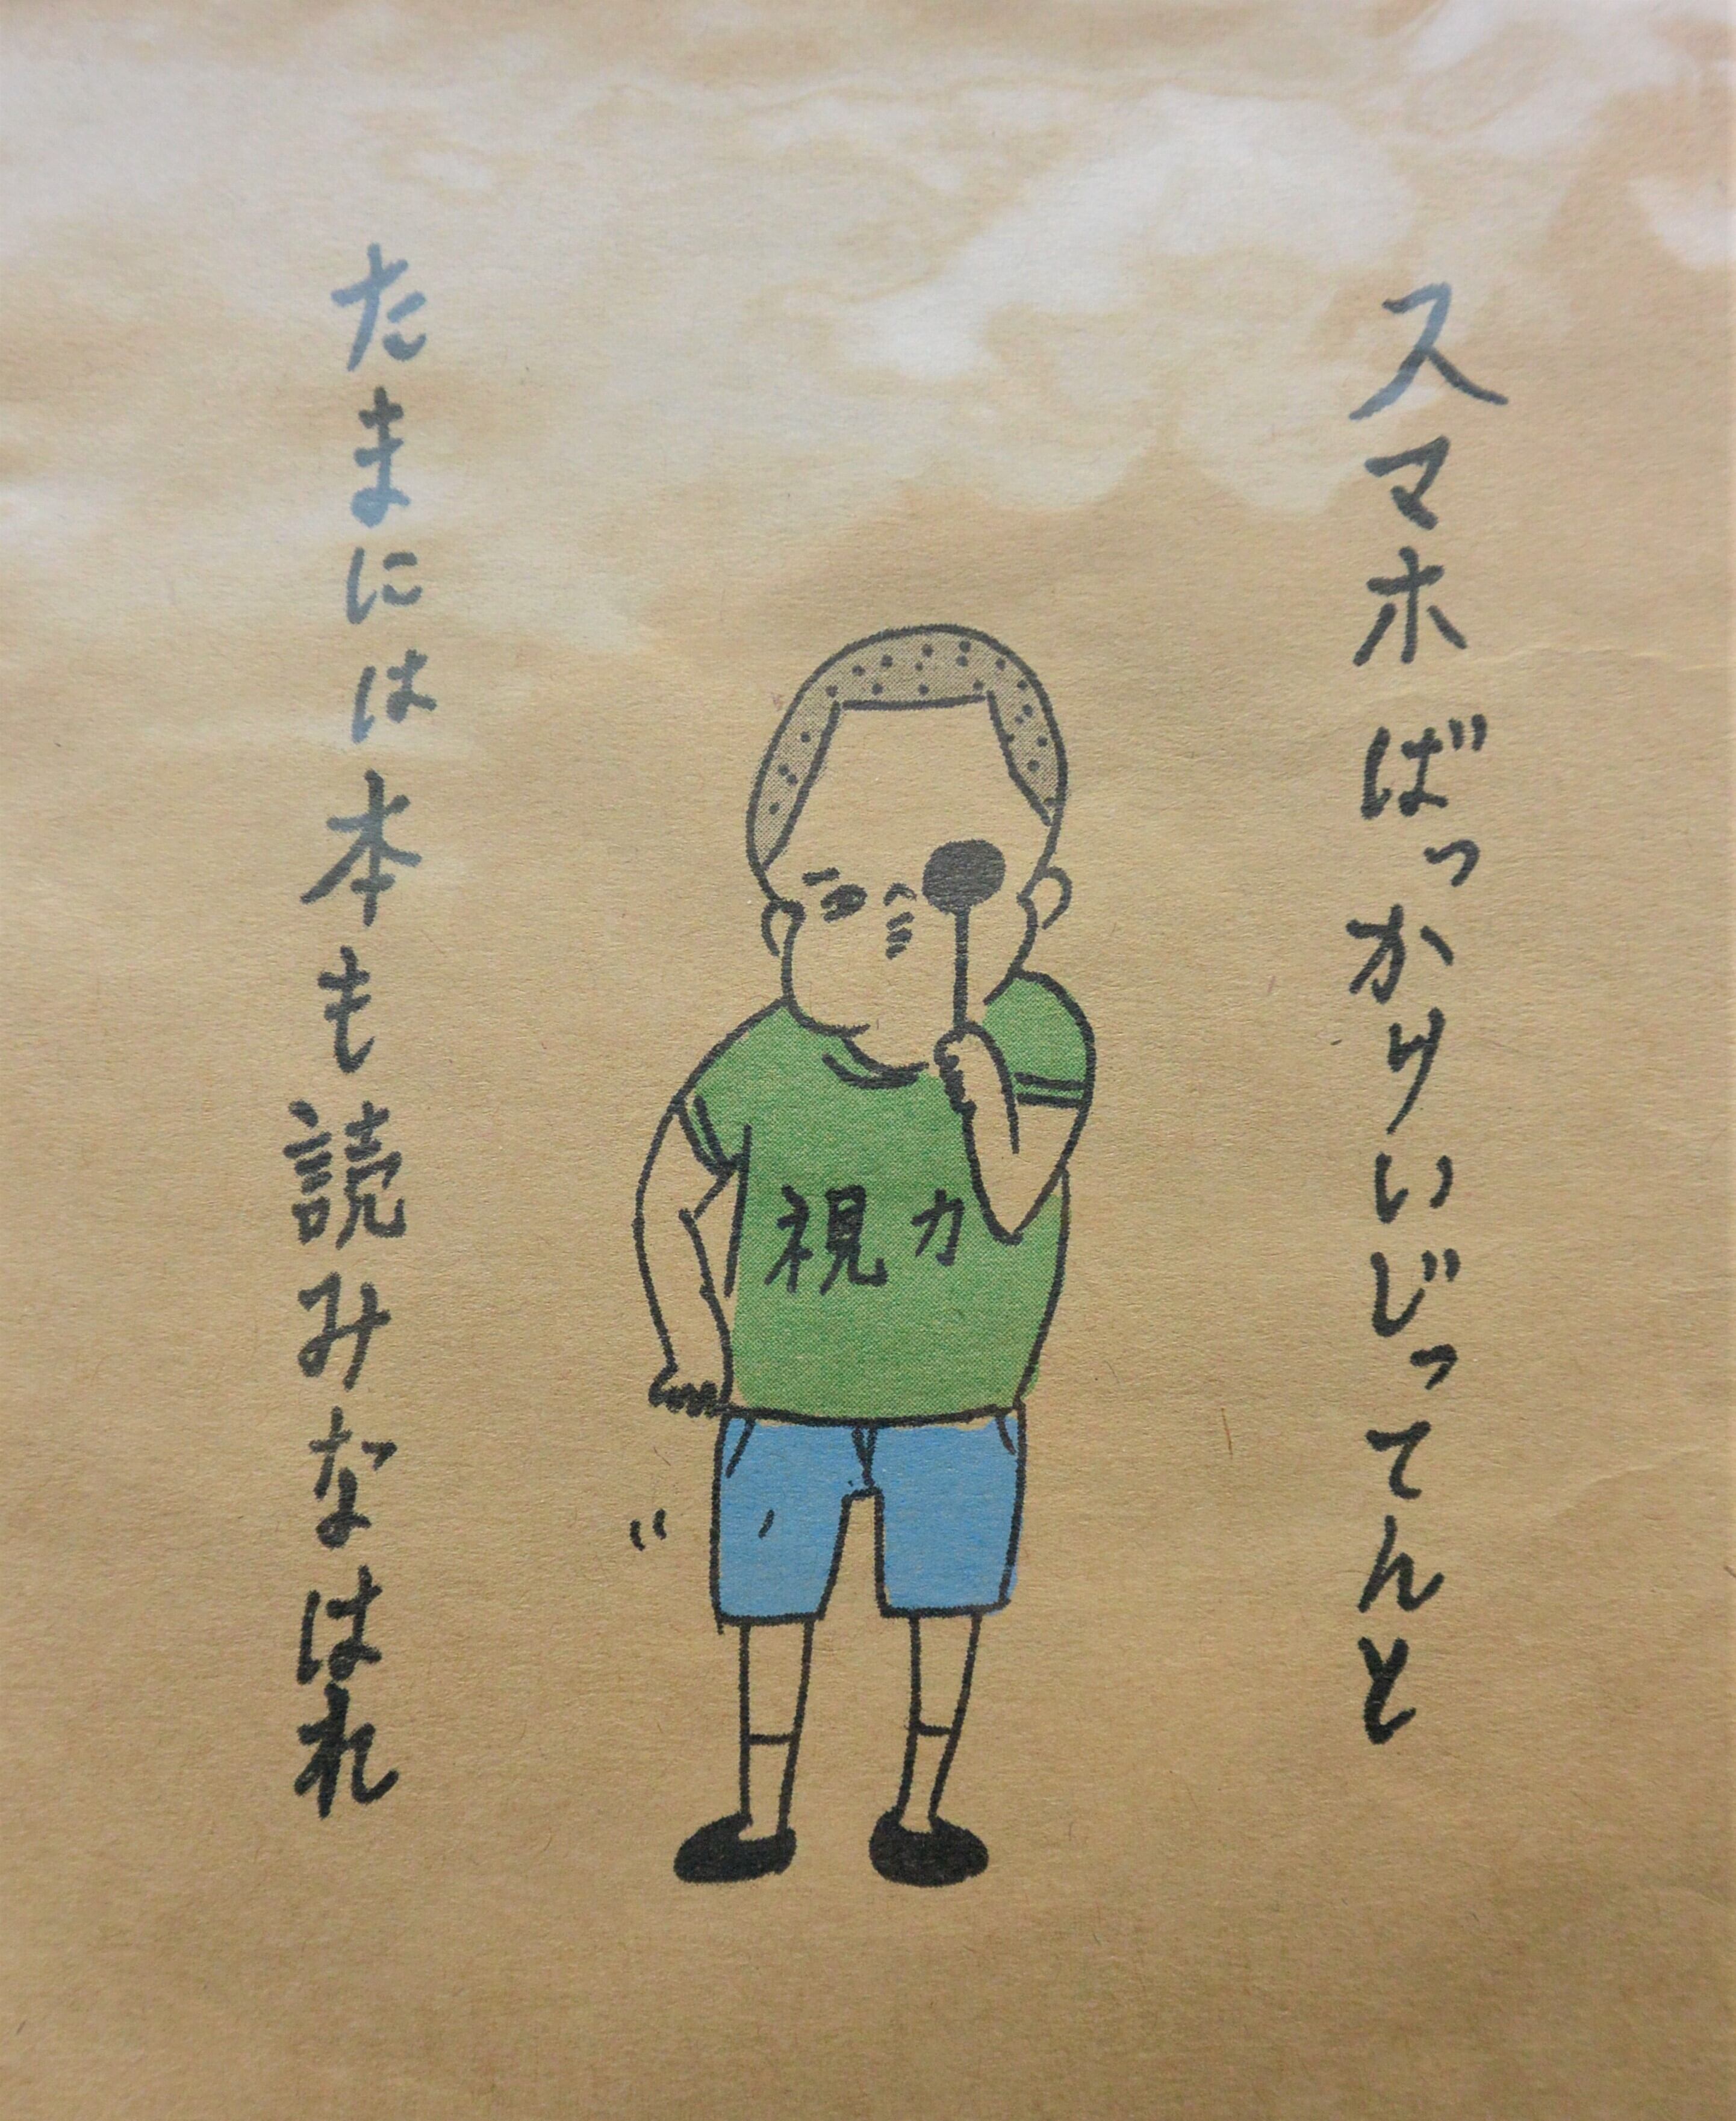 スマホばっかりいじってんと
たまには本も読みなはれ
視力